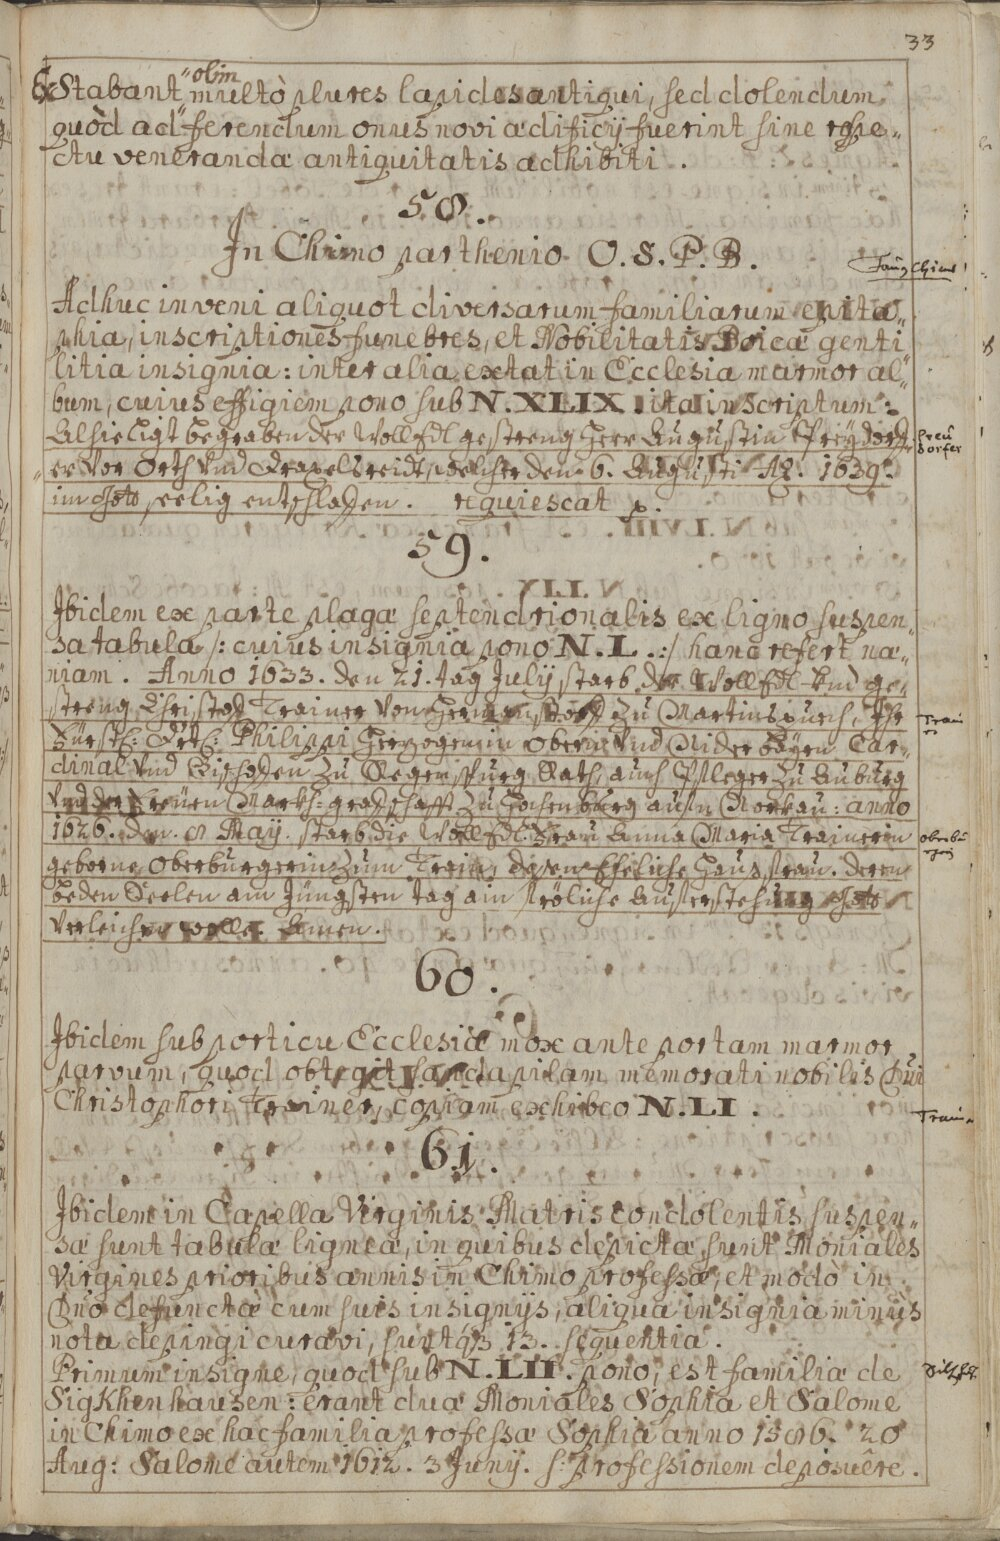 33
Exstabant olim multò plures lapides antiqui, sed dolendum,
quòd ad ferendum onus novi ædificÿ fuerint sine respe„
ctu venerandæ antiquitatis adhibiti.
58.
In Chimo parthenio O. S. P. B.
Adhuc inveni aliquot diversarum familiarum epita„
phia, inscriptiones funebres, et Nobilitatis Boicæ genti„
litia insignia: inter alia extat in Ecclesia marmor al„
bum, cuius effigiem pono sub N. XLIX. ita inscriptum:
Alhie ligt begraben der Wolledl gestreng Herr Augustin Preÿdorf„
Preu
dorfer
er von Orth vnd welcher den 6. Augusti Aº. 1639.
im Gott seelig entschlafen. requiescat p.
59.
Ibidem ex parte plagæ septendrionalis ex ligno suspen„
sa tabula /: cuius insignia pono N. L. :/ hanc refert næ„
niam. Anno 1633. den 21. tag Julÿ starb der Wolledl vnd ge„
streng Christof Trainer von zu Martinspurch, Ihr
Fürstl: Philippi Herzogen in Obern vnd Nider Baÿen Car„
dinal vnd Bischofen zu Regenspurg Rath, auch Pfleger zu Auburg
vnd der Freÿen Markh=grafschafft zu Hochenburg aufm Norkau: anno
1626. den 8 Maÿ. starb die Wolledl: Frau Anna Maria Trainerin
geborne Oberburgerin zum Train, dessen Eheliche Hausfrau. deren
beden Seelen am Jüngsten tag ain fröliche Aufferstehung Gott
verleichen wolle. Amen.
60.
Ibidem sub porticu Ecclesiæ mox ante portam marmor
parvum, quod obtegit sandapilam memorati nobilis Dñi
Christophori Trainer, copiam exhibeo N. LI.
61.
Ibidem in Capella Virginis Matris condolentis suspen„
sæ sunt tabulæ ligneæ, in quibus depictæ sunt Moniales
Virgines prioribus annis in Chimo professæ, et modò in
Dño defunctæ cum suis insignÿs, aliqua insignia minùs
nota depingi curavi, suntq3 13. sequentia.
Primum insigne, quod sub N. LII. pono, est familiæ de
SigKhenhausen: erant duæ Moniales Sophia et Salome
in Chimo ex hac familia professæ Sophia anno 1586. 20
Aug: Salome autem 1612. 3 Junÿ. s: professionem deposuêre.